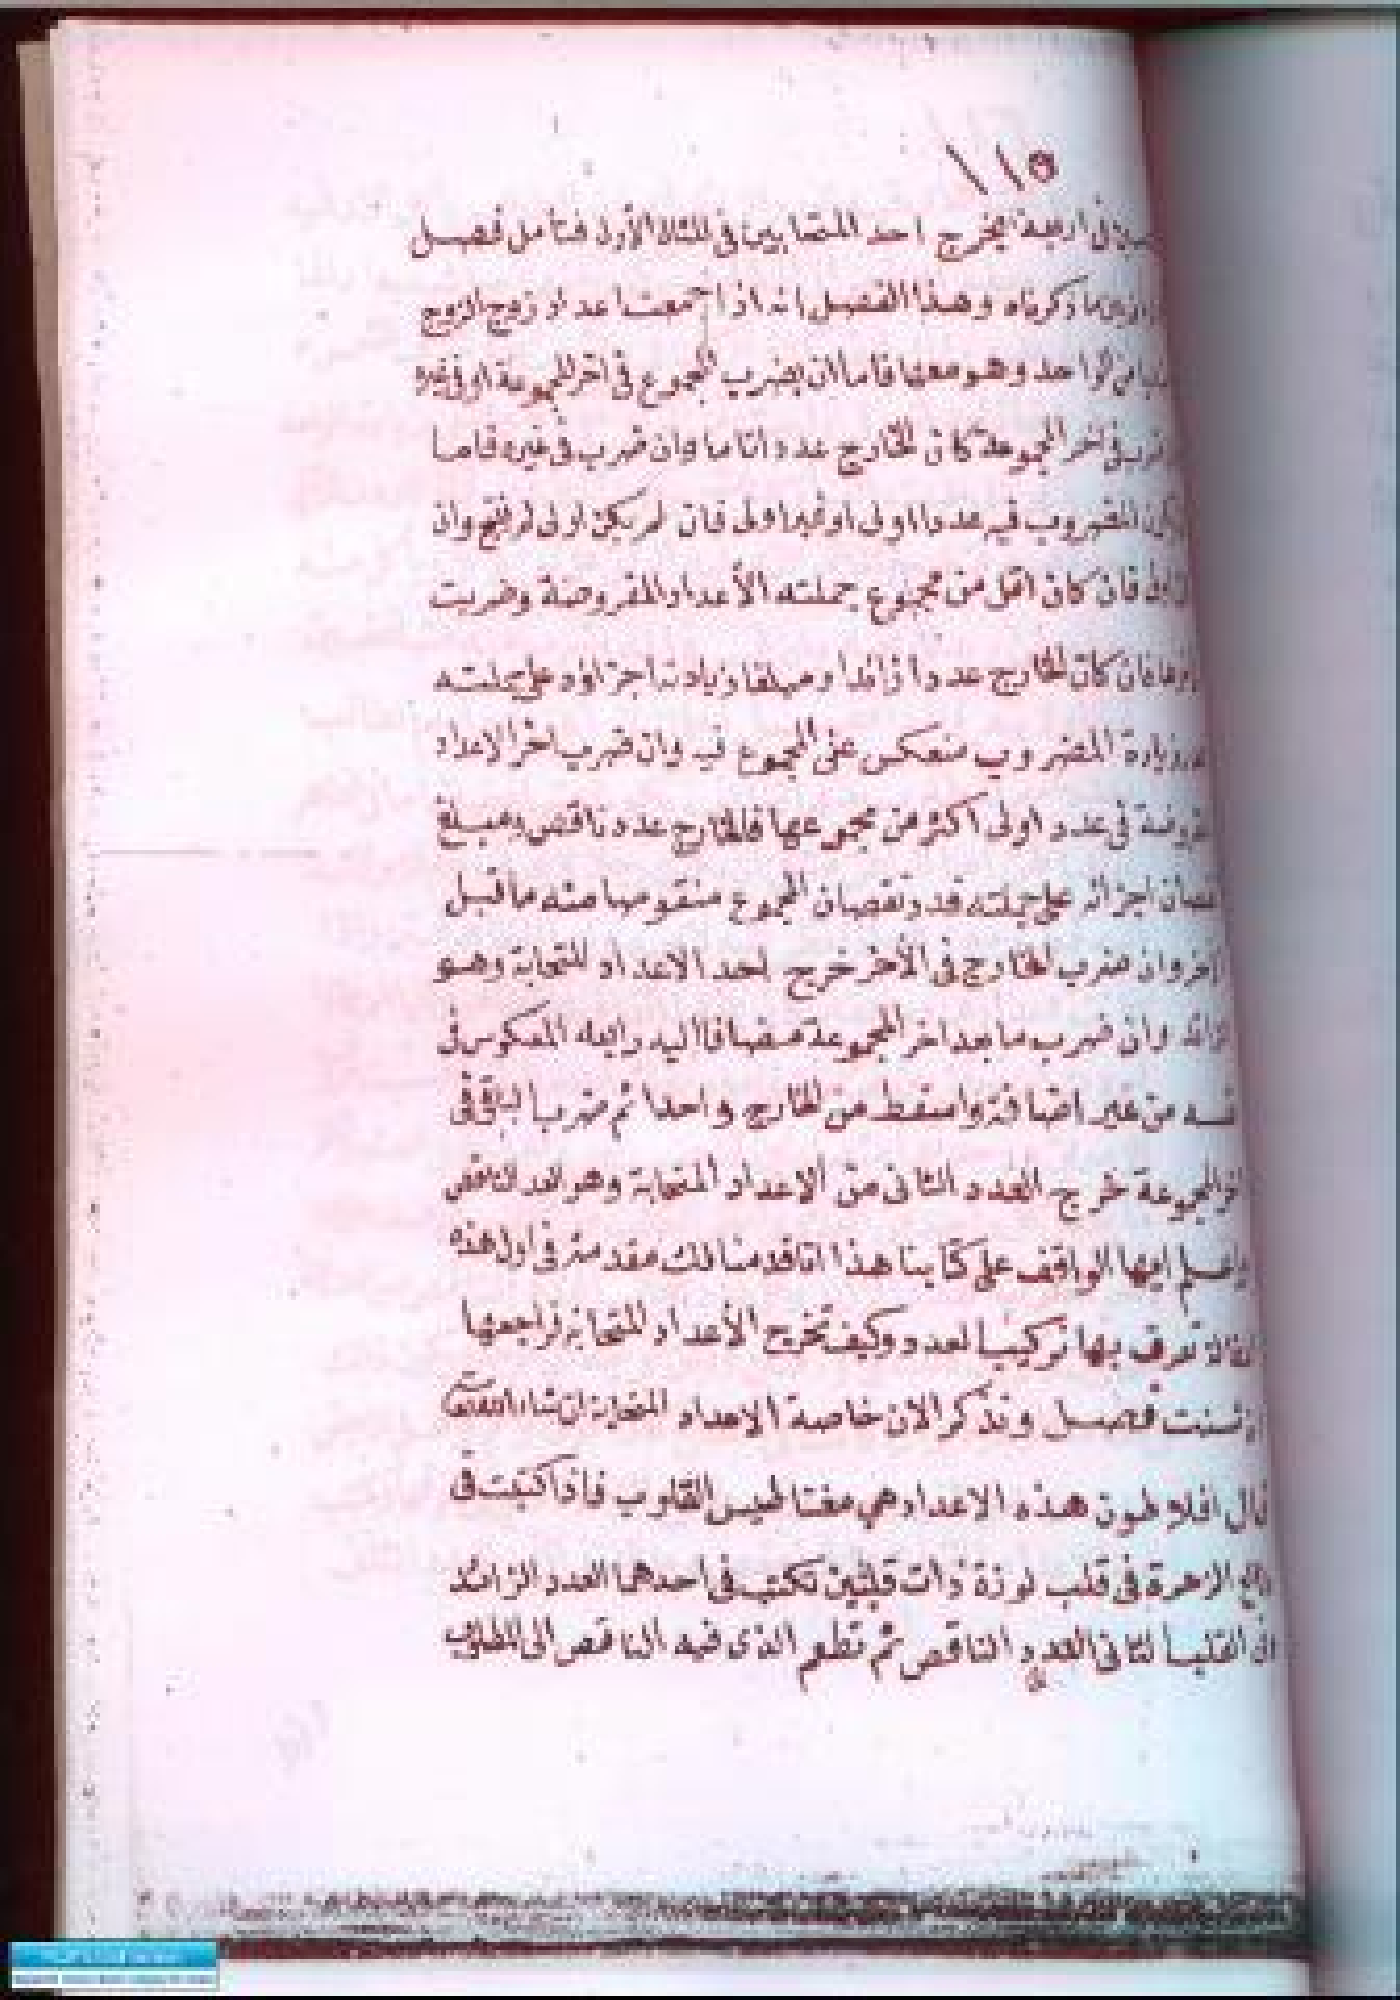 ١١٥
في اربعة يخرج احد المتحابين في المثال الأول فتأمل فصل
ما ذكرناه وهذا الفصل انه اذا جمعت اعداد زوج الزوج
من الواحد وهو معها فاما ان يضرب المجموع في آخر المجموعة او في غيره
في اخر المجموعة كان الخارج عددا تاما وان ضرب في غيره فاما
المضروب فيه عددا اولى او غير اولى فان لم يكن اولى لم ينتج وان
فان كان اقل من مجموع جملته الأعداد المفروضة وضربت
فان كان الخارج عددا زائدا ومبلغا زيادته اجزاؤه على جملته
زيادة المضروب منعكس عن المجموع فيه وان ضرب اخر الاعداد
في عدد اولى اكثر من مجموعها فالخارج عدد ناقص ومبلغ
نقصان اجزائه على جملته قدر نقصان المجموع منقوصا منه ما قبل
وان ضرب الخارج في الأخر خرج احد الاعداد المتحابة وهو
الزائد وان ضرب ما بعد اخر المجموعة مضافا اليه رابعه المعكوس في
نفسه من غير اضافة واسقط من الخارج واحدا ثم ضرب الباقي في
المجموعة خرج العدد الثاني من الاعداد المتحابة وهو العدد الناقص
واعلم ايها الواقف على كتابنا هذا انا قدمنا لك مقدمة في اول هذه
المقالة تعرف بها تركيب العدد وكيف تخرج الأعداد المتحابة فراجعها
ان شئت فصل ونذكر الان خاصة الاعداد المتحابة ان شاء الله تعالى
قال افلاطون هذه الاعداد هي مغناطيس القلوب فاذا كتبت في
الزهرة في قلب لوزة ذات قلبين تكتب في احدهما العدد الزائد
القلب الثاني العدد الناقص ثم تطعم الذي فيه الناقص الى المطلوب